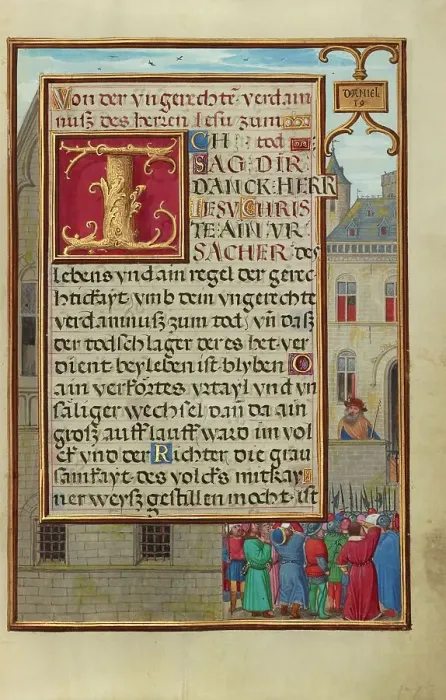 DANIEL
19
Von der vngerechtē verdam
nusz des herren Jesu zum
ICH tod
SAG DIR
DANCK HERR
IESV CHRIS
TE AIN VR
SACHER des
lebens vnd ain regel der gerec
htickayt vmb dein vngerechte
verdamnusz zum tod, vn̄ dasz
der todschlager der es het ver
dient bey leben ist blyben O
ain verkortes vrtayl vnd vn
säliger wechsel dan̄ da ain
grosz aufflauff ward im vol
ck vnd der Richter die grau
samkayt des volcks mit kay
ner weysz gestillen mocht ist